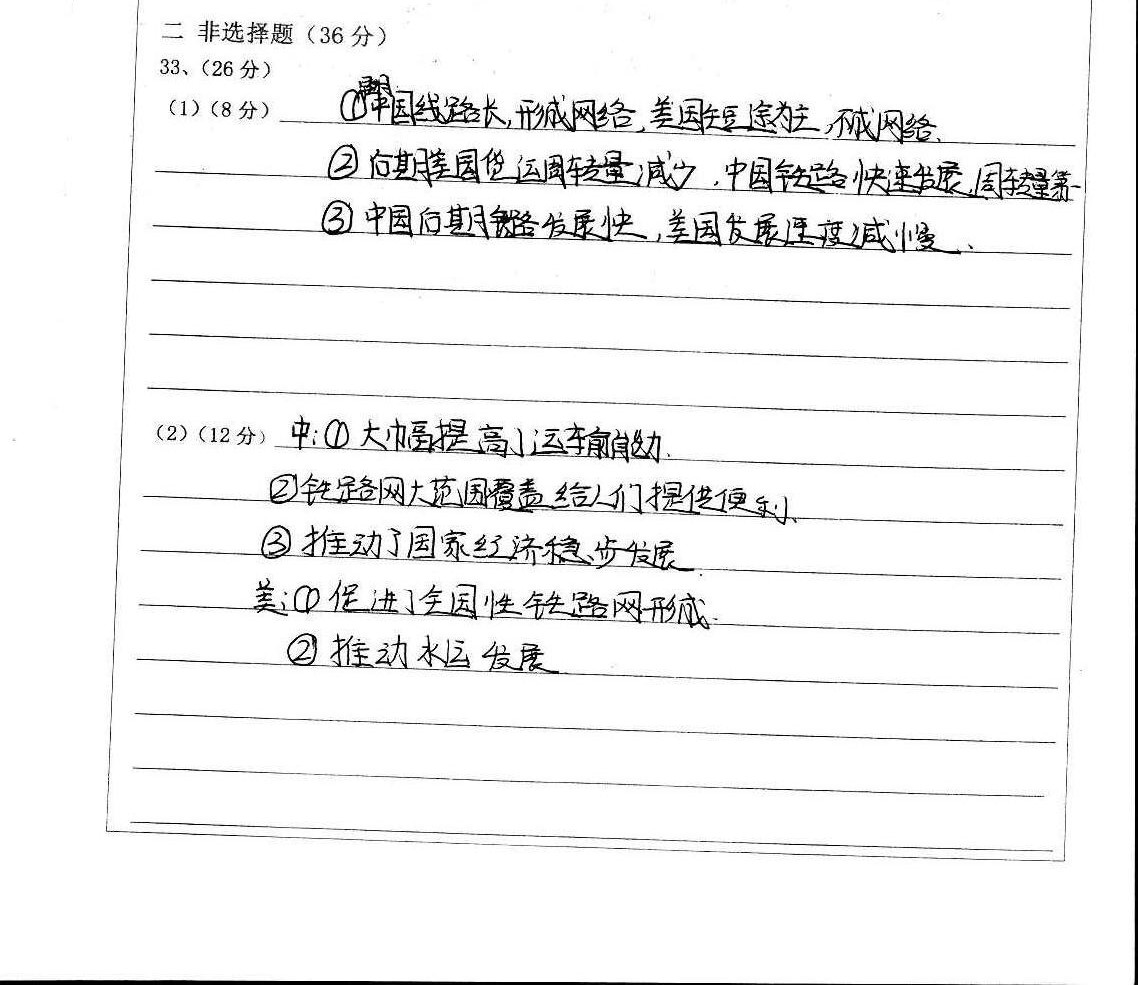 二 非选择题（36 分）
33、（26 分）
（1）（8 分） ①中国线路长,形成网络,美国短途为主,不成网络.
②后期美国货运周转量减少,中国铁路快速发展,周转量第一
③中国后期铁路发展快,美国发展速度减慢、
（2）（12 分） 中:①大幅提高了运输能力.
②铁路网大范围覆盖给人们提供便利、
③推动了国家经济稳步发展.
美:①促进了全国性铁路网形成.
②推动水运发展